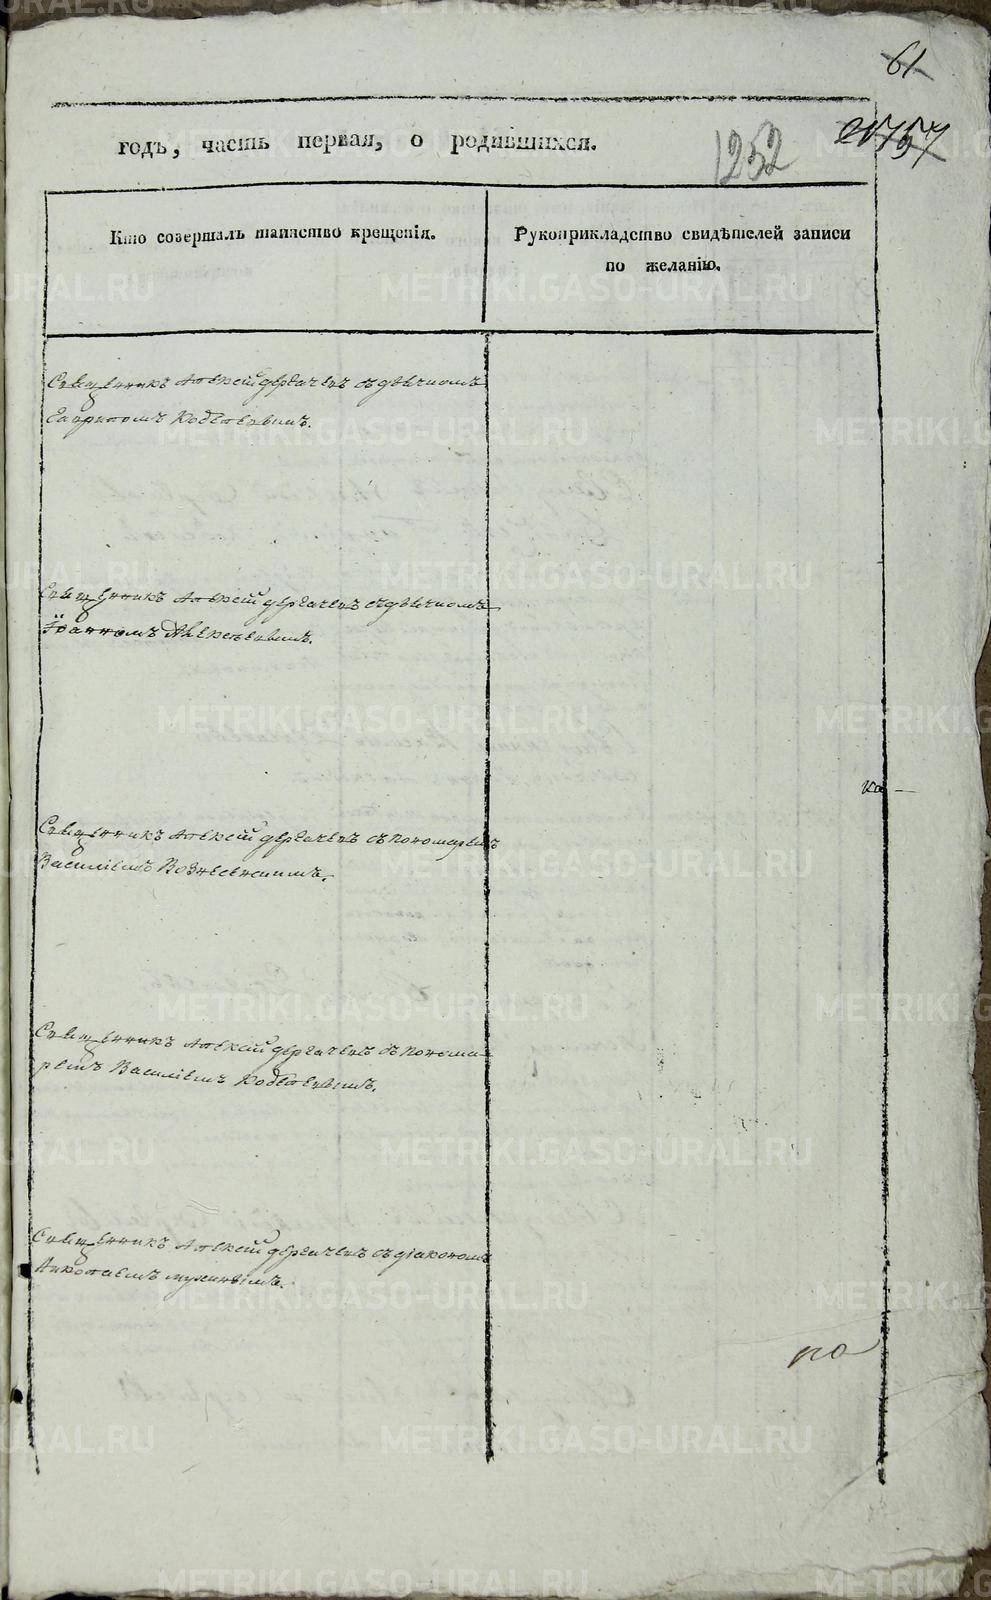 61
57
1252
годъ, часть первая, о родившихся.
Кто совершалъ таинство крещенія.
Рукоприкладство свидѣтелей записи
по желанію.
Священникъ Алексѣй Дергачевъ съ дьячкомъ
Гавриломъ Кобелевымъ.
Священникъ Алексѣй Дергачевъ съ дьячкомъ
Іоанномъ Алексѣевымъ.
Священникъ Алексѣй Дергачевъ съ пономаремъ
Василіемъ Вознесенскимъ.
Священникъ Алексѣй Дергачевъ съ понома-
ремъ Василіемъ Кобелевымъ.
Священникъ Алексѣй Дергачевъ съ діакономъ
Николаемъ
METRIKI.GASO-URAL.RU